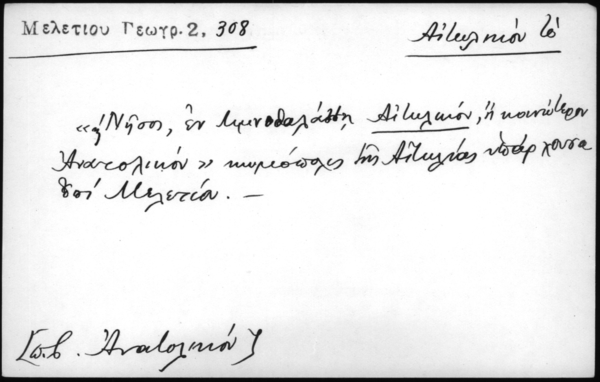 Μελετίου Γεωγρ. 2, 308
Αἰτωλικόν τό
«ἡ Νῆσος, ἐν λιμνοθαλάσσῃ Αἰτωλικόν, ἤ κοινότερον
Ἀνατολικόν» κωμόπολις τῆς Αἰτωλίας ὑπάρχουσα
ἐπί Μελετίου. –
[π.β. Ἀνατολικόν]